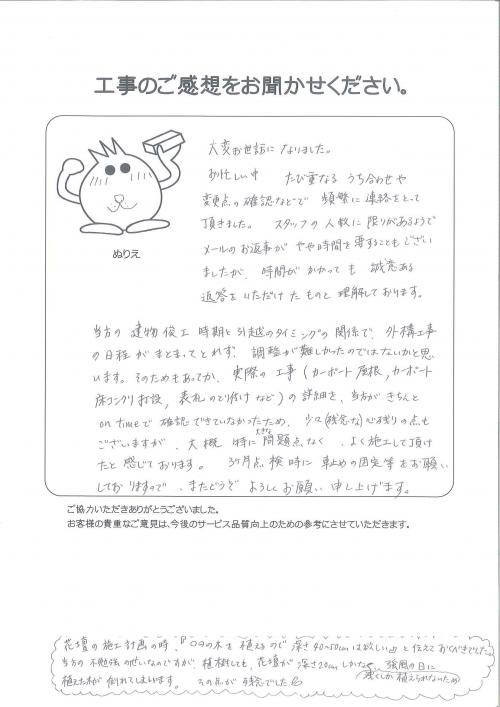 工事のご感想をお聞かせください。
大変お世話になりました。
お忙しい中 たび重なる うち合わせや
変更点の確認などで 頻繁に連絡をとって
頂きました。 スタッフの人数に限りがあるようで
メールのお返事が やや時間を要することもござい
ましたが、時間が かかっても 誠意ある
返答をいただけたものと理解しております。
ぬりえ
当方の 建物 竣工 時期と引越のタイミングの関係で、外構工事
の日程が まとまってとれず、調整が難しかったのではないかと思
います。そのためもあってか、実際の工事(カーポート屋根、カーポート
床コンクリ打設、表札のとり付けなど)の詳細を、当方がきちんと
on timeで確認できていなかったため、少々(残念な)心残りの点も
ございますが、大概 特に 大きな 問題点なく、よく施工して頂け
たと感じております。 3ヶ月点検時に 車止めの固定等をお願い
しておりますので、またどうぞ よろしくお願い申し上げます。
ご協力いただきありがとうございました。
お客様の貴重なご意見は、今後のサービス品質向上のための参考にさせていただきます。
花壇の施工計画の時、『○○の木を植えるので深さ40〜50cmは欲しい』と伝えておくべきでした。
当方の不勉強のせいなのですが、植樹しても、花壇が深さ20cmしかなく、強風の日に
浅くしか植えられないため
植えた木が倒れてしまいます。 その点が残念でした